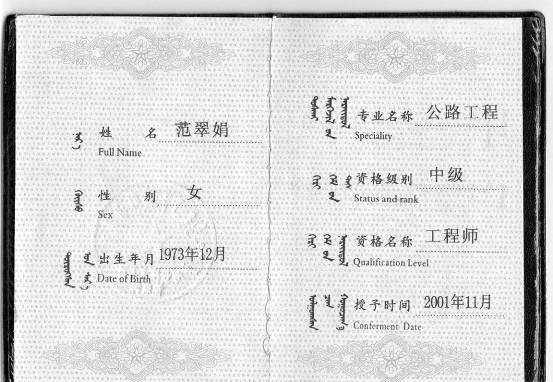 姓 名 范翠娟
Full Name
性 别 女
Sex
出生年月 1973年12月
Date of Birth
专业名称 公路工程
Speciality
资格级别 中级
Status and rank
资格名称 工程师
Qualification Level
授予时间 2001年11月
Conferment Date